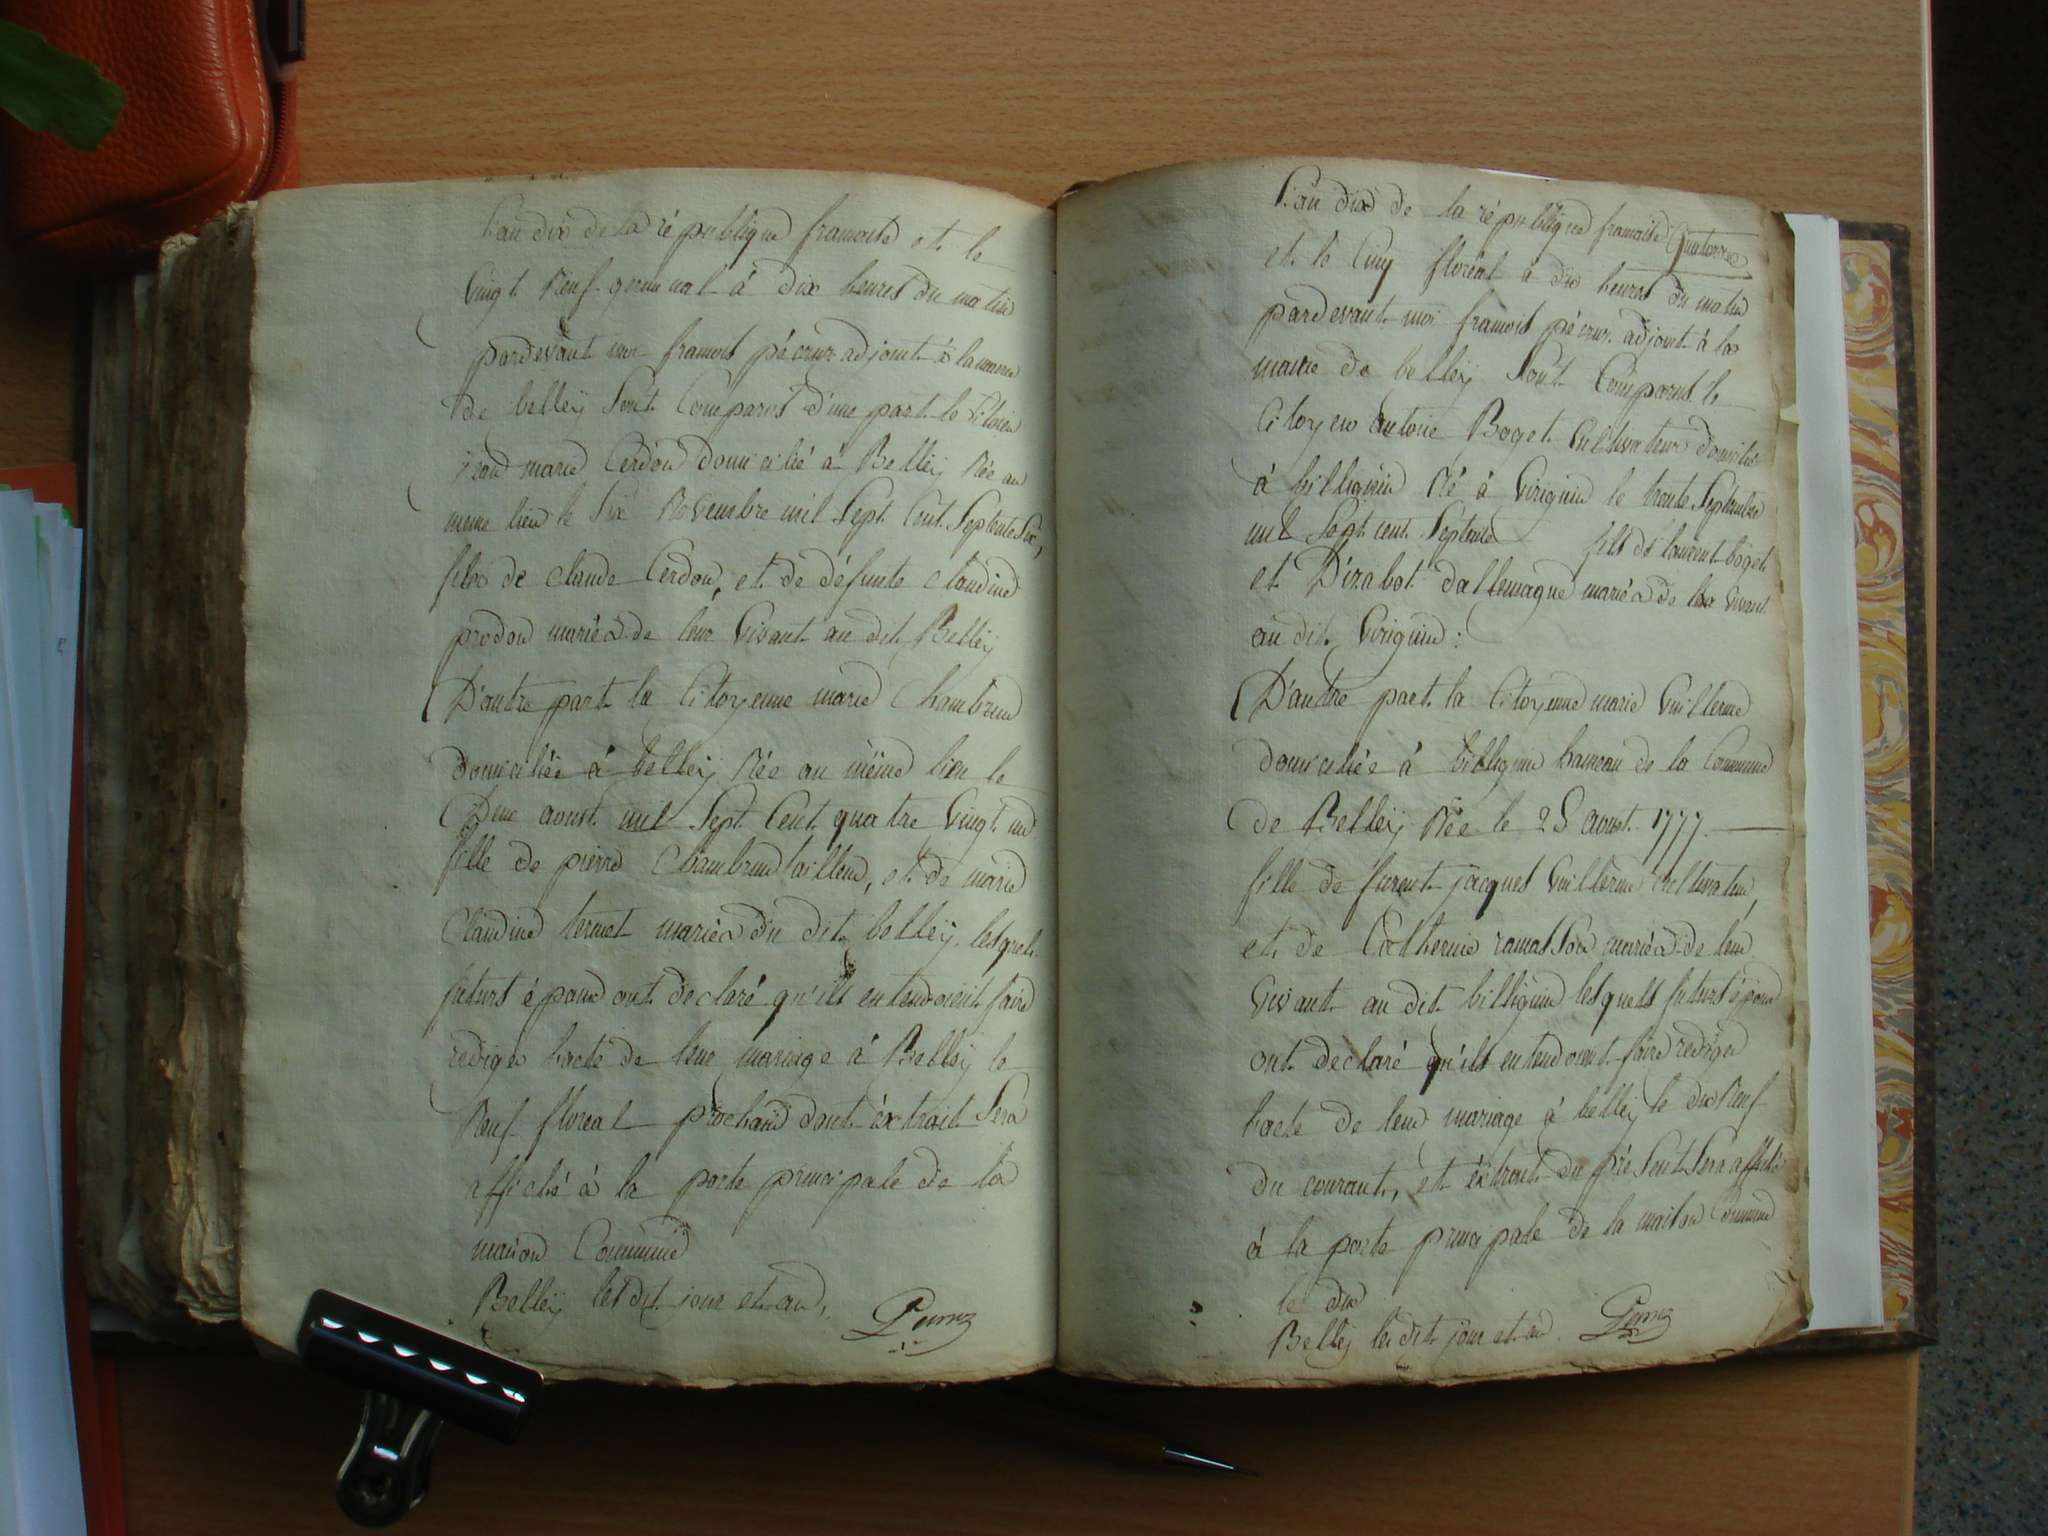 L'an dix de la république francoise et le
vingt neuf germinal à dix heures du matin
pardevant moi francois pécruz adjoint à la mairie
de belleÿ sont comparus d'une part le citoien
jean marie Cerdon domicilié à Belleÿ née au
meme lieu le six novembre mil sept cent septente six,
fils de claude Cerdon, et de défunte claudine
prodon mariés de leur vivant au dit Belleÿ
D'autre part la citoyenne marie Chambrun
domiciliée à belleÿ née au même lieu le
aoust mil sept cent quatre vingt un
fille de pierre Chambrun tailleur, et de marie
Claudine termet mariés du dit belleÿ, lesquels
futurs époux ont declaré qu'ils entendoient faire
rediger l'acte de leur mariage à Belleÿ le
neuf floreal prochain dont extrait sera
affiché à la porte principale de la
maison Commune
Belleÿ lesdit jour et an,
Pecruz
L'an dix de la république francoise quatorze
et le cinq floréal à dix heures du matin
pardevant moi francois pécruz adjoint à la
mairie de belleÿ sont comparus le
citoyen antoine Boget cultivateur domicilié
à billignin né à virignin le trente septembre
mil sept cent septente fils de laurent boget
et D'izabot dallemagne mariés de leur vivant
au dit virignin :
D'autre part la citoyenne marie vuillerme
domiciliée à billignin hameau de la Commune
de Belleÿ née le 28 aoust 1777.
fille de furent jacques vuillerme cultivateur,
et de Catherine ramasson mariés de leur
vivant au dit billignin lesquels futurs époux
ont declaré qu'ils entendoient faire rediger
l'acte de leur mariage à belleÿ le dix neuf
du courant, et extrait du présent sera affiché
à la porte principale de la maison Commune
le dix
Belleÿ lesdit jour et an. Pecruz